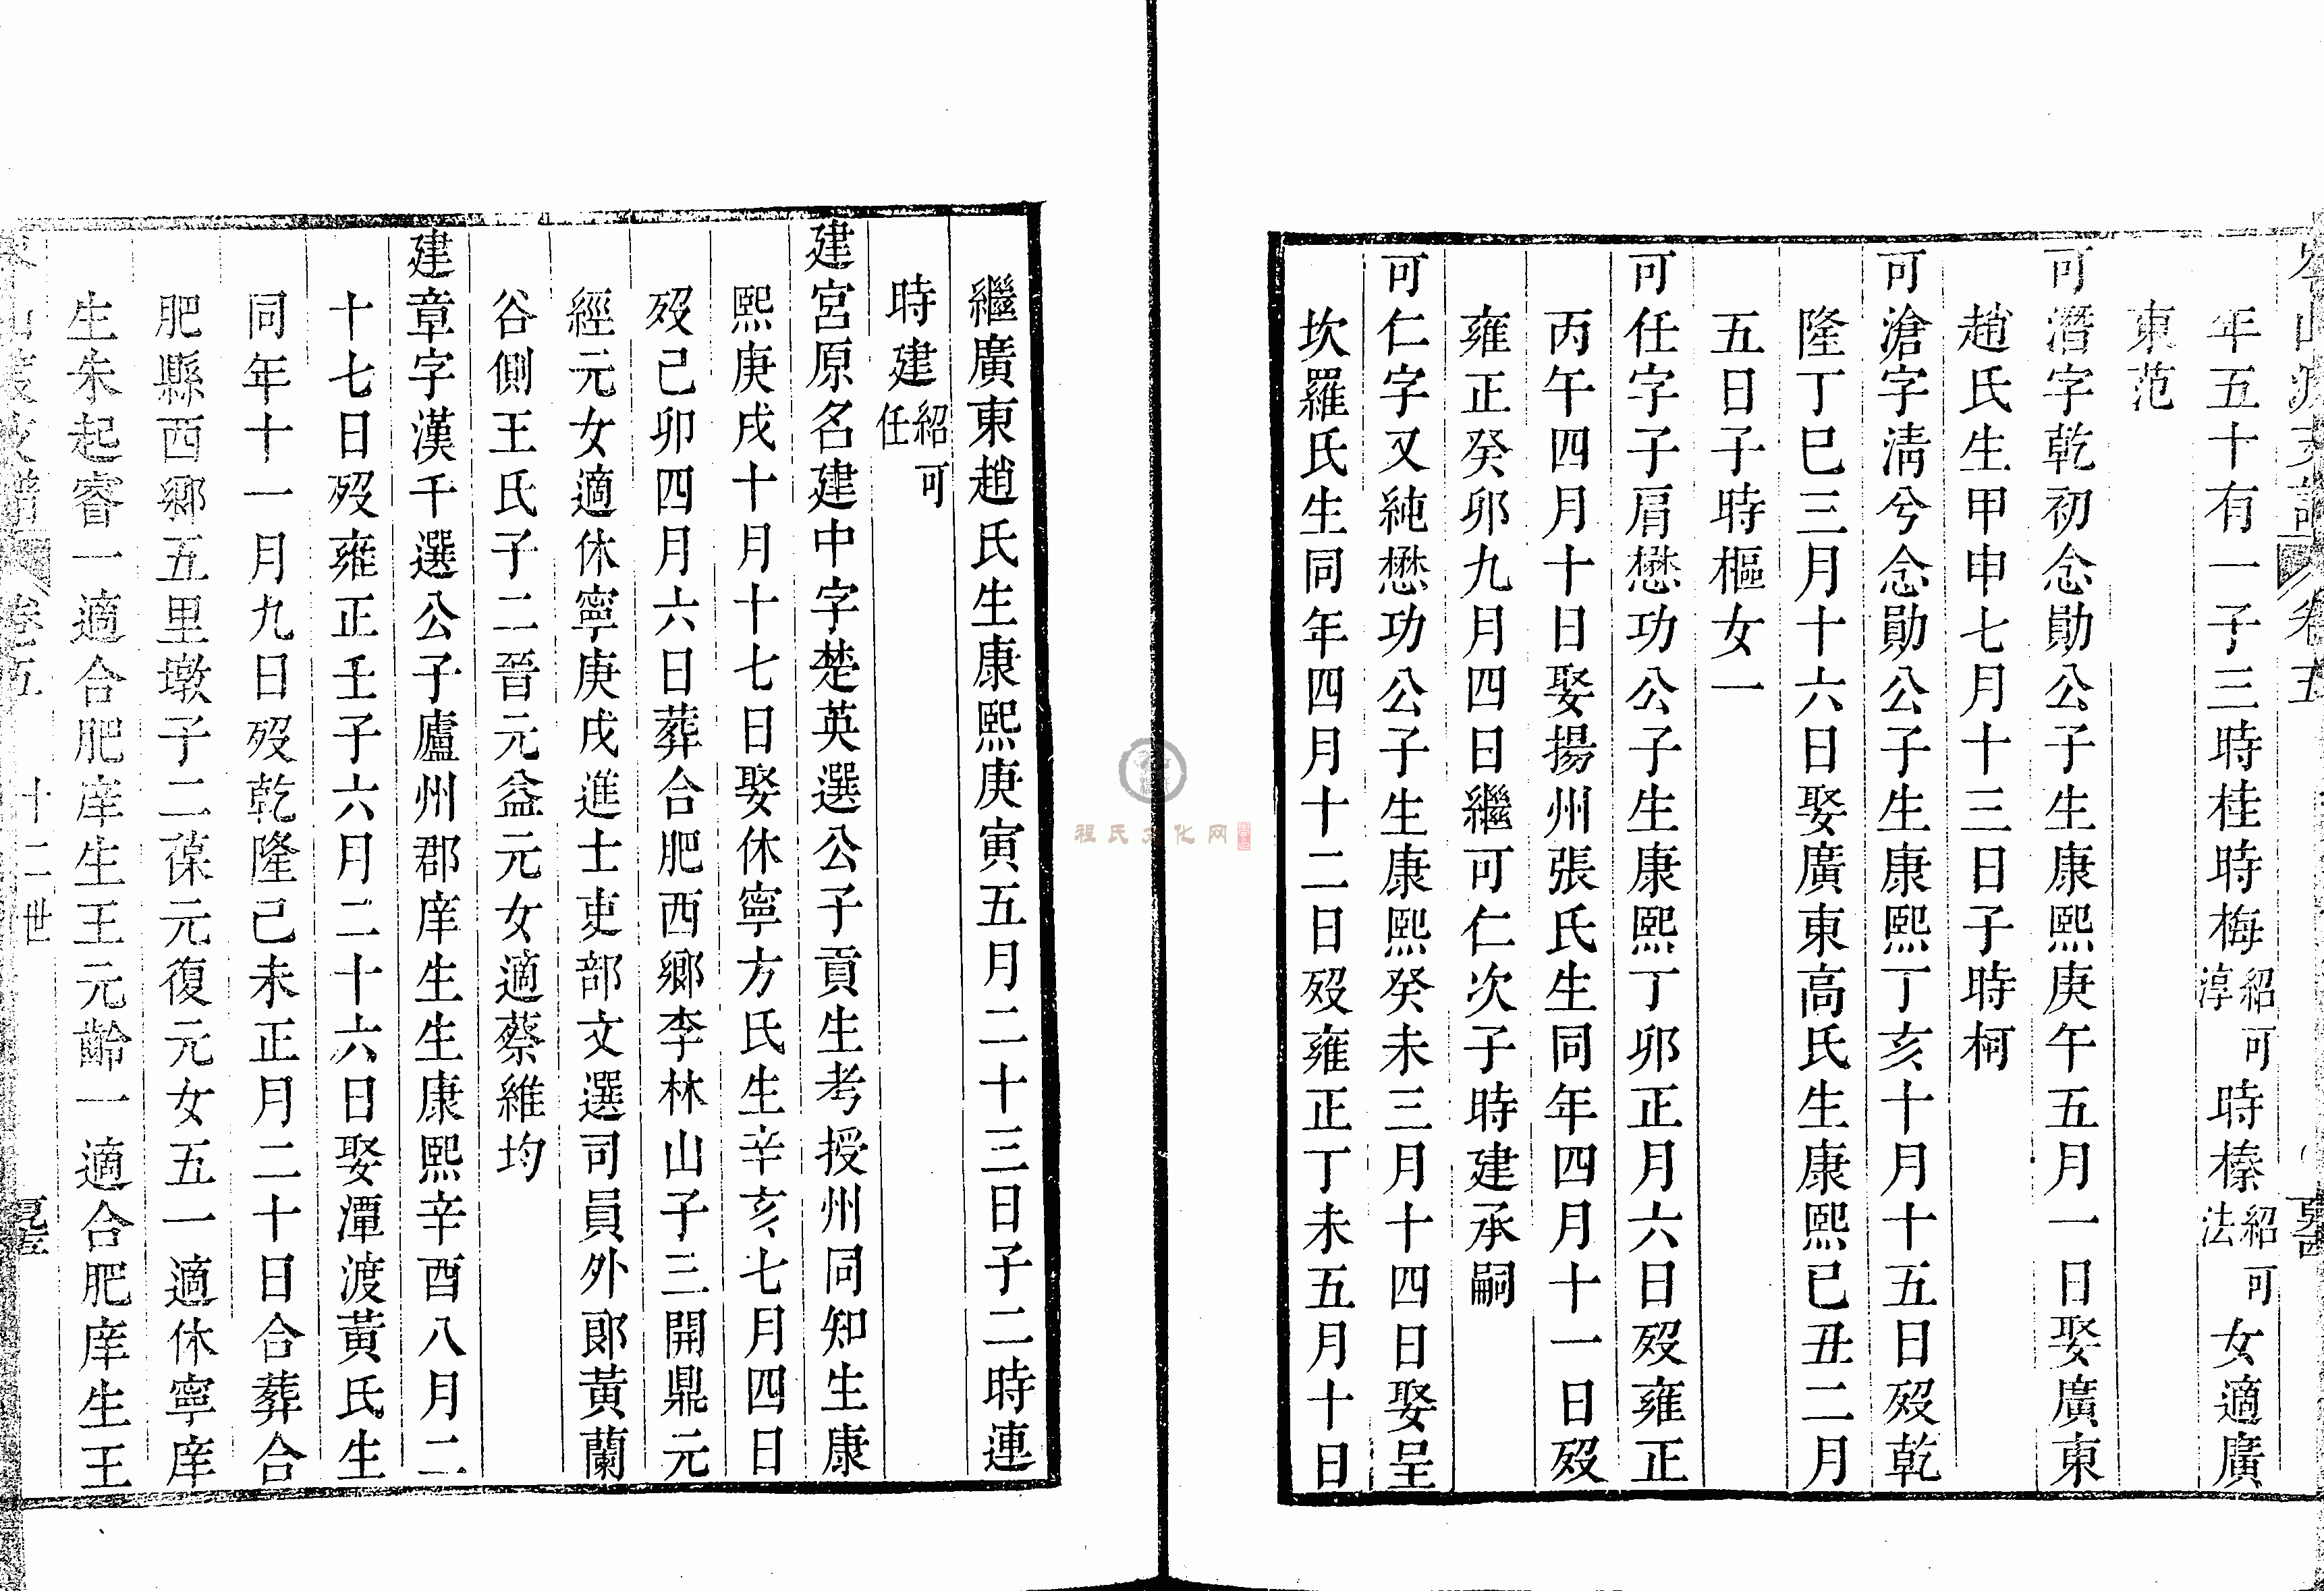 年五十有一子三時桂時梅紹可淳時榛紹可法女適廣
東范
可潛字乾初念勛公子生康熙庚午五月一日娶廣東
趙氏生甲申七月十三日子時柯
可滄字淸兮念勛公子生康熙丁亥十月十五日歿乾
隆丁巳三月十六日娶廣東高氏生康熙已丑二月
五日子時樞女一
可任字子肩懋功公子生康熙丁卯正月六日歿雍正
丙午四月十日娶揚州張氏生同年四月十一日歿
雍正癸卯九月四日繼可仁次子時建承嗣
可仁字又純懋功公子生康熙癸未三月十四日娶呈
坎羅氏生同年四月十二日歿雍正丁未五月十日
繼廣東趙氏生康熙庚寅五月二十三日子二時連
時建紹可任
建宮原名建中字楚英選公子貢生考授州同知生康
熙庚戌十月十七日娶休寧方氏生辛亥七月四日
歿己卯四月六日葬合肥西鄉李林山子三開鼎元
經元女適休寧庚戌進士吏部文選司員外郎黃蘭
谷側王氏子二晉元益元女適蔡維均
建章字漢千選公子廬州郡庠生生康熙辛酉八月二
十七日歿雍正壬子六月二十六日娶潭渡黃氏生
同年十一月九日歿乾隆己未正月二十日合葬合
肥縣西鄉五里墩子二葆元復元女五一適休寧庠
生朱起睿一適合肥庠生王元齡一適合肥庠生王
卷五 十二世
程氏文化网